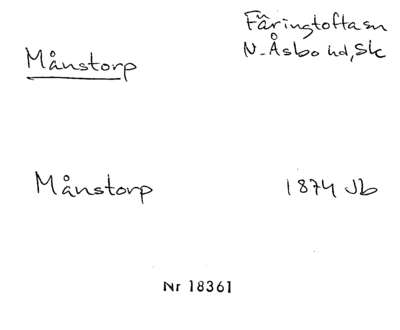 Färingtofta sn
N. Åsbo hd, Sk
Månstorp
Månstorp 1874 Jb
Nr 18361